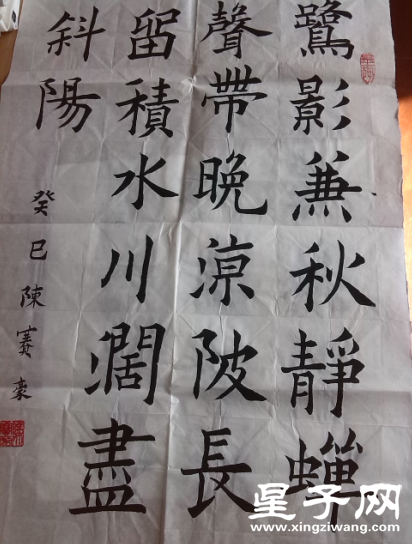 鷺影兼秋靜蟬
聲帶晚涼陂長
留積水川濶盡
斜陽
癸巳陳賽
星子网
www.xingziwang.com